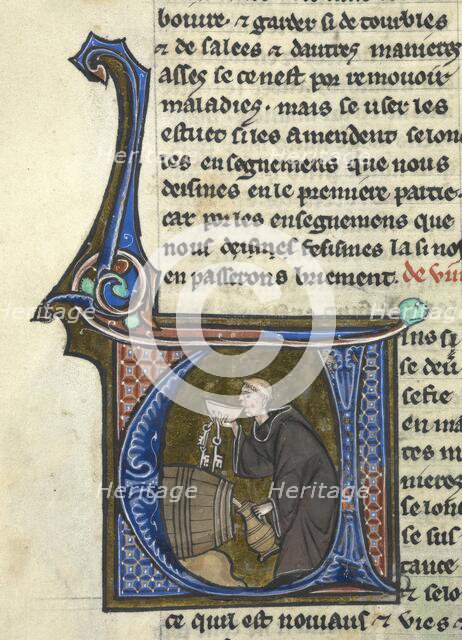 boiure. ⁊ garder si de tourbles
⁊ de salees ⁊ dautres manieres
assez se ce nest por remouoir
maladies. mais se user les
estuet si les amendent selonc
les ensegnemens que nous
deisines en le premiere partie.
car por les ensegnemens que
nous deisines
en passerons briement. de vin
ins si
se deu
selie
en ma
tes m
mieres
selonc
se sus
tance
⁊ selo
ce quil est nouiaus ⁊ vies ⁊
Heritage
Heritage
Heritage
Heritage
C